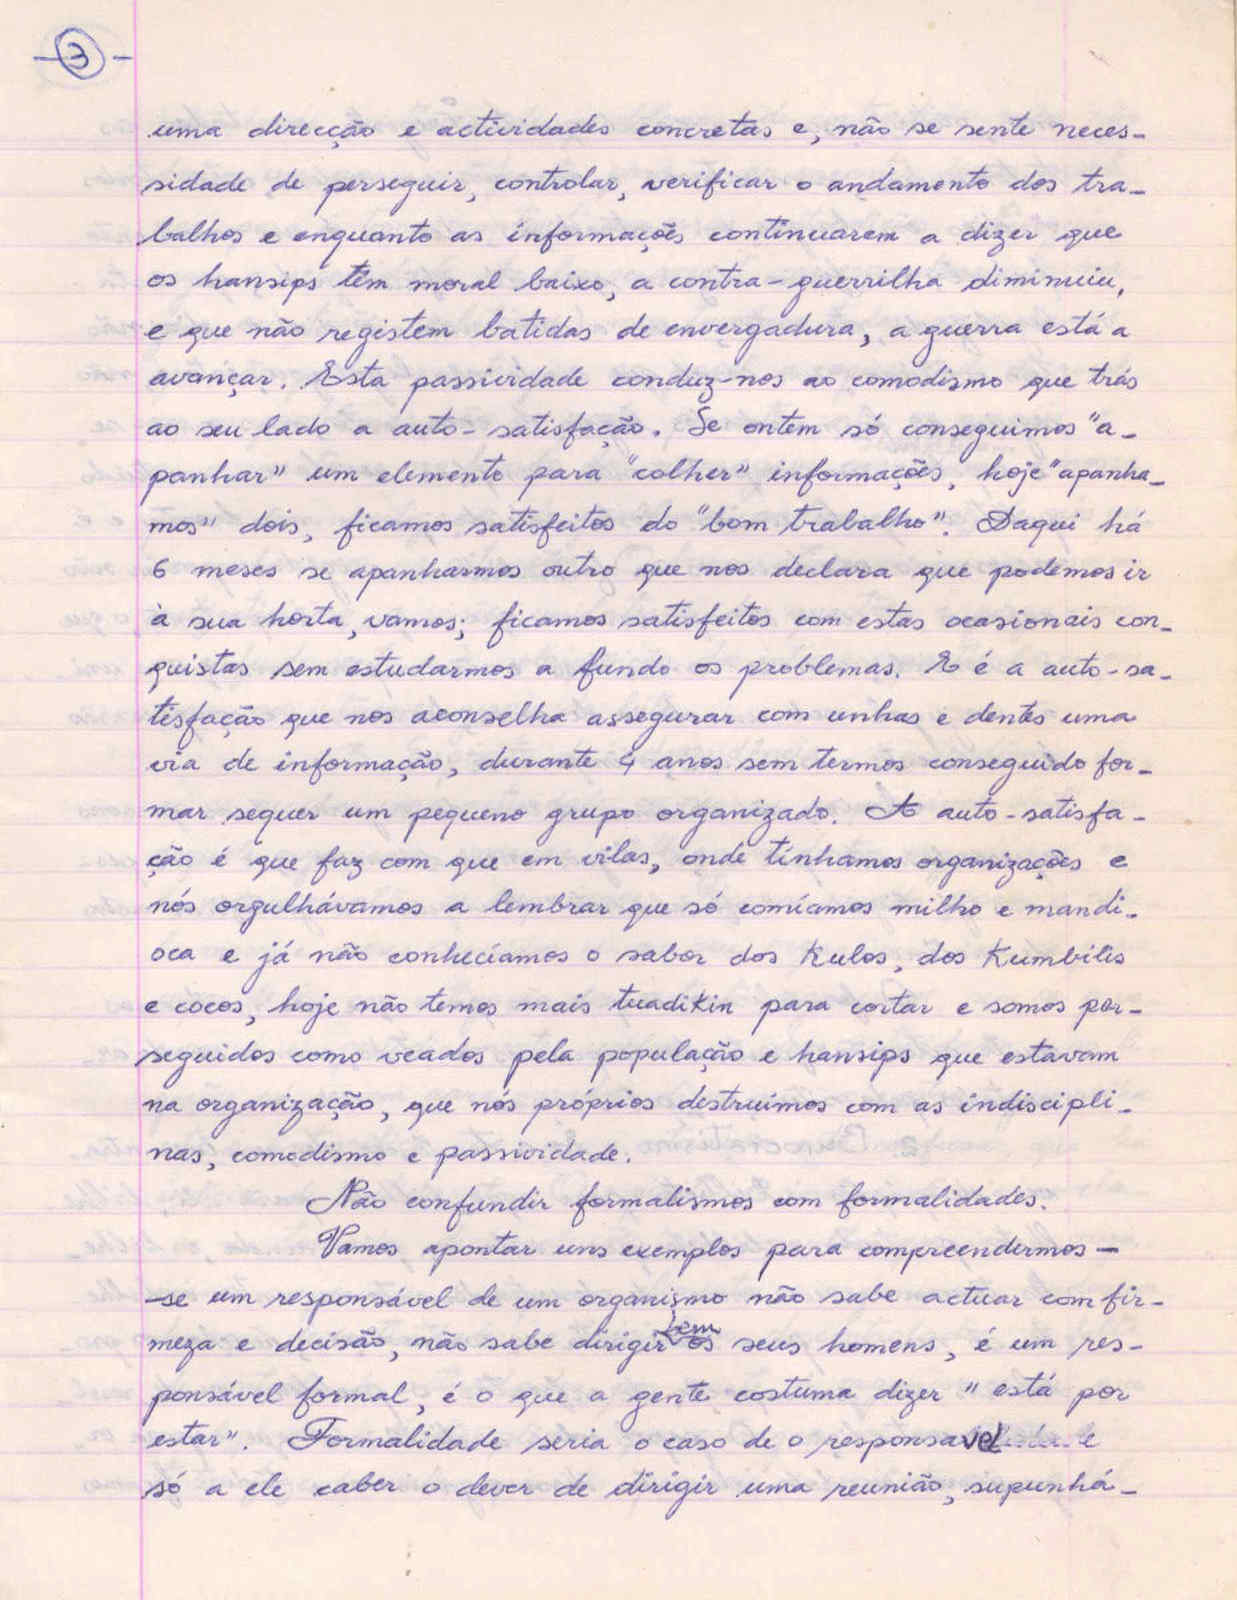 -3-
uma direcção e actividades concretas e, não se sente neces-
sidade de perseguir, controlar, verificar o andamento dos tra-
balhos e enquanto as informações continuarem a dizer que
os hansips têm moral baixo, a contra-guerrilha diminuiu,
e que não registem batidas de envergadura, a guerra está a
avançar. Esta passividade conduz-nos ao comodismo que trás
ao seu lado a auto-satisfação. Se ontem só conseguimos "a-
panhar" um elemento para "colher" informações, hoje "apanha-
mos" dois, ficamos satisfeitos do "bom trabalho". Daqui há
6 meses se apanharmos outro que nos declara que podemos ir
à sua horta, vamos; ficamos satisfeitos com estas ocasionais con-
quistas sem estudarmos a fundo os problemas. E é a auto-sa-
tisfação que nos aconselha assegurar com unhas e dentes uma
via de informação, durante 4 anos sem termos conseguido for-
mar sequer um pequeno grupo organizado. A auto-satisfa-
ção é que faz com que em vilas, onde tínhamos organizações e
nós orgulhávamos a lembrar que só comíamos milho e mandi-
oca e já não conhecíamos o sabor dos Kulos, dos Kumbilis
e cocos, hoje não temos mais tuadikin para cortar e somos per-
seguidos como veados pela população e hansips que estavam
na organização, que nós próprios destruímos com as indiscipli-
nas, comodismo e passividade.
Não confundir formalismos com formalidades.
Vamos apontar uns exemplos para compreendermos-
-se um responsável de um organismo não sabe actuar com fir-
meza e decisão, não sabe dirigir bem os seus homens, é um res-
ponsável formal, é o que a gente costuma dizer "está por
estar". Formalidade seria o caso de o responsavel e
só a ele caber o dever de dirigir uma reunião, supunhá-